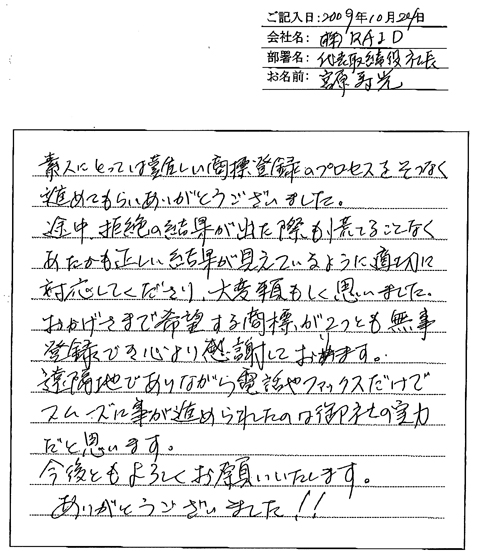 ご記入日：2009年10月20日
会社名： ㈱RAID
部署名： 代表取締役社長
お名前： 宮原寿光
素人にとっては難しい商標登録のプロセスをそつなく
進めてもらいありがとうございました。
途中、拒絶の結果が出た際も慌てることなく
あたかも正しい結果が見えているように適切に
対応してくださり、大変頼もしく思いました。
おかげさまで希望する商標が2つとも無事
登録でき心より感謝しております。
遠隔地でありながら電話やファックスだけで
スムーズに事が進められたのは御社の実力
だと思います。
今後ともよろしくお願いいたします。
ありがとうございました!!